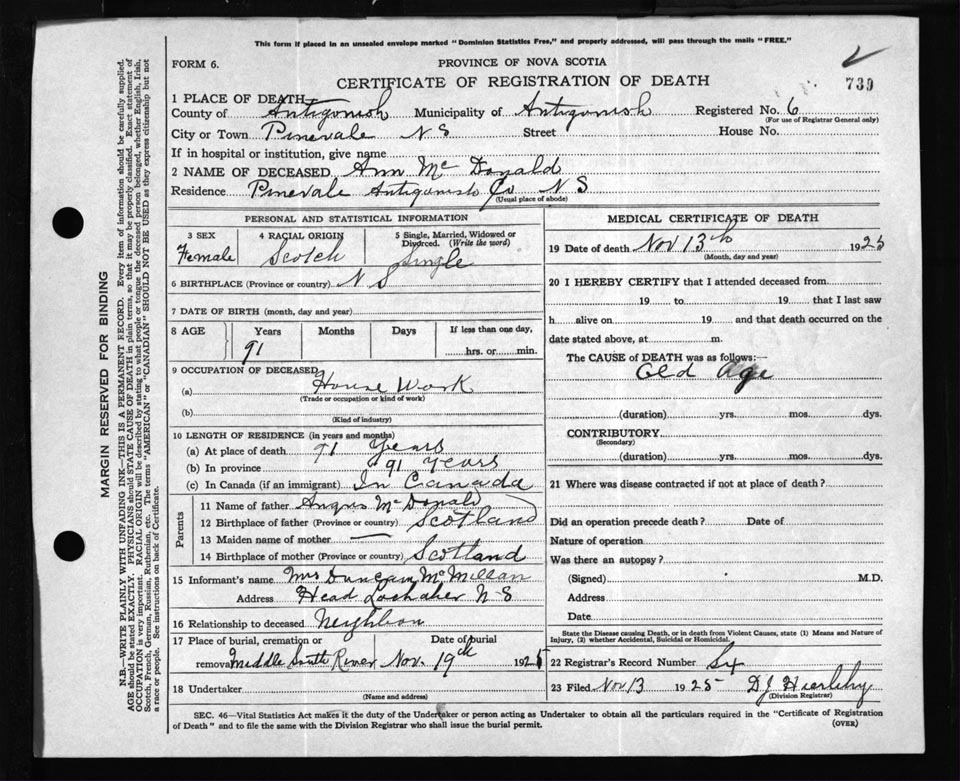 This form if placed in an unsealed envelope marked "Dominion Statistics Free," and properly addressed, will pass through the mails "FREE."
FORM 6.
PROVINCE OF NOVA SCOTIA
CERTIFICATE OF REGISTRATION OF DEATH
739
1 PLACE OF DEATH
County of Antigonish Municipality of Antigonish Registered No. 6
(For use of Registrar General only)
City or Town Pinevale N S Street House No.
If in hospital or institution, give name
2 NAME OF DECEASED Ann Mc Donald
Residence Pinevale Antigonish Co N S
(Usual place of abode)
PERSONAL AND STATISTICAL INFORMATION
3 SEX 4 RACIAL ORIGIN 5 Single, Married, Widowed or Divorced. (Write the word)
Female Scotch Single
6 BIRTHPLACE (Province or country) N S
7 DATE OF BIRTH (month, day and year)
8 AGE Years Months Days If less than one day,
91 hrs. or min.
9 OCCUPATION OF DECEASED
(a) House Work
(Trade or occupation or kind of work)
(b)
(Kind of industry)
10 LENGTH OF RESIDENCE (in years and months)
(a) At place of death 91 Years
(b) In province 91 Years
(c) In Canada (if an immigrant) In Canada
Parents
11 Name of father Angus Mc Donald
12 Birthplace of father (Province or country) Scotland
13 Maiden name of mother —
14 Birthplace of mother (Province or country) Scotland
15 Informant's name Mrs Duncan McMillan
Address Head Lochaber N-S
16 Relationship to deceased Neighbor
17 Place of burial, cremation or Date of burial
removal Middle South River Nov. 19th 1925
18 Undertaker
(Name and address)
MEDICAL CERTIFICATE OF DEATH
19 Date of death Nov 13th 1925
(Month, day and year)
20 I HEREBY CERTIFY that I attended deceased from
19 to 19 that I last saw
h alive on 19 and that death occurred on the
date stated above, at m.
The CAUSE of DEATH was as follows:—
Old Age
(duration) yrs. mos. dys.
CONTRIBUTORY
(Secondary)
(duration) yrs. mos. dys.
21 Where was disease contracted if not at place of death?
Did an operation precede death? Date of
Nature of operation
Was there an autopsy?
(Signed) M.D.
Address
Date
State the Disease causing Death, or in death from Violent Causes, state (1) Means and Nature of
Injury, (2) whether Accidental, Suicidal or Homicidal.
22 Registrar's Record Number Six
23 Filed Nov 13 1925 D J Hierlihy
(Division Registrar)
SEC. 46—Vital Statistics Act makes it the duty of the Undertaker or person acting as Undertaker to obtain all the particulars required in the "Certificate of Registration
of Death" and to file the same with the Division Registrar who shall issue the burial permit.
(OVER)
MARGIN RESERVED FOR BINDING
N.B.—WRITE PLAINLY WITH UNFADING INK—THIS IS A PERMANENT RECORD. Every item of information should be carefully supplied.
AGE should be stated EXACTLY. PHYSICIANS should STATE CAUSE OF DEATH in plain terms, so that it may be properly classified. Exact statement of
OCCUPATION is very important. RACIAL ORIGIN will be described by stating to what people or tongue the deceased person belonged, whether English, Irish,
Scotch, French, German, Russian, Ruthenian, etc. The terms "AMERICAN" or "CANADIAN" SHOULD NOT BE USED as they express citizenship but not
a race or people. See instructions on back of Certificate.